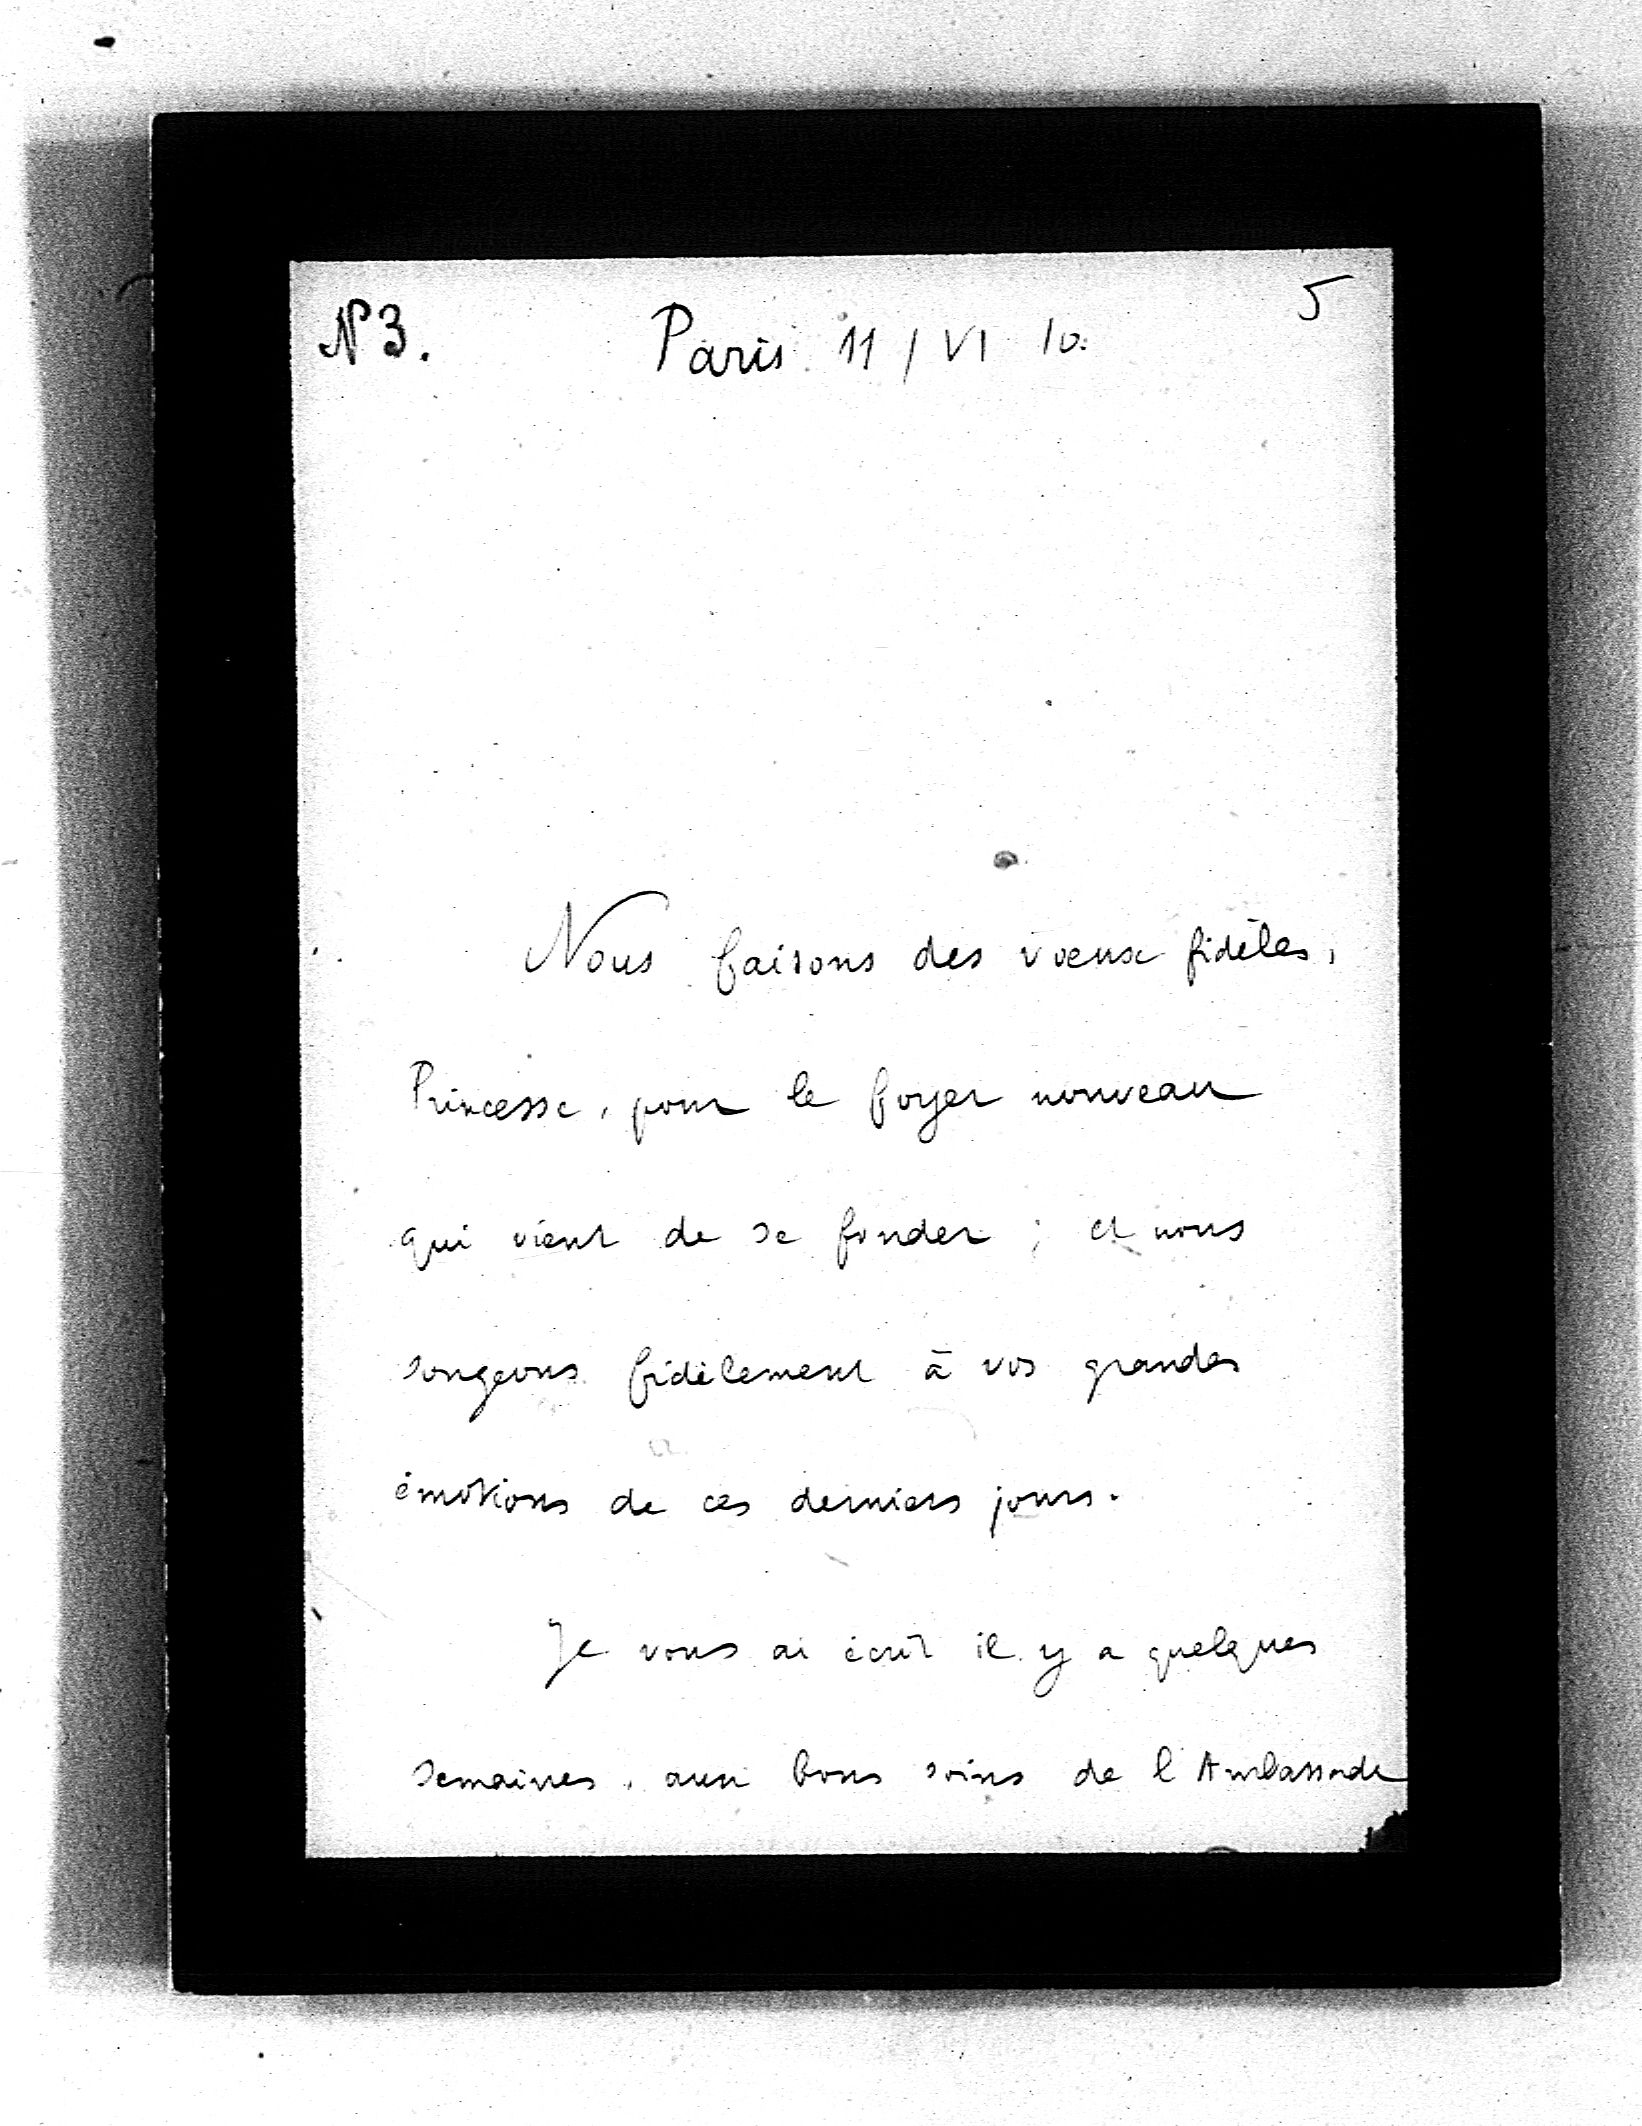 N 3. Paris 11 / VI 10. 5
Nous faisons des voeux fidèles,
Princesse, pour le foyer nouveau
qui vient de se fonder ; et nous
songeons fidèlement à vos grandes
émotions de ces derniers jours.
Je vous ai écrit il y a quelques
semaines, aux bons soins de l'Ambassade